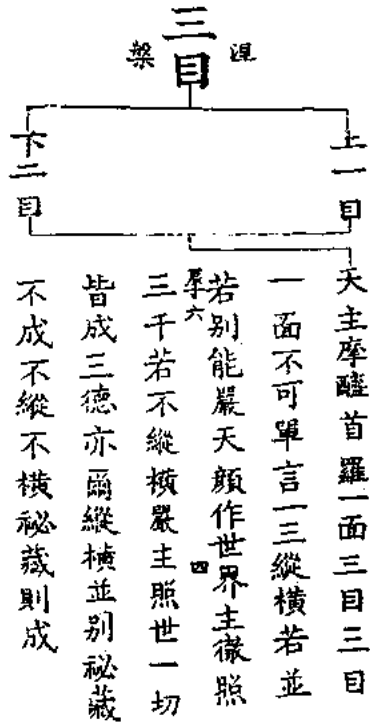 三目
涅槃
上一目
下二目
天主摩醯首羅一面三目三目
一面不可單言一三縱橫若並
若別能嚴天顏作世界主徹照
羣六
四
三千若不縱橫嚴主照世一切
皆成三德亦爾縱橫並別祕藏
不成不縱不橫祕藏則成